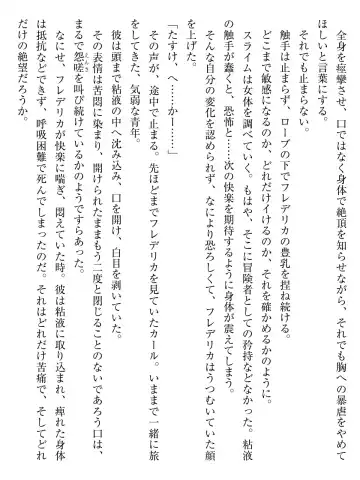 全身を痙攣させ、口ではなく身体で絶頂を知らせながら、それでも胸への暴虐をやめて
ほしいと言葉にする。
それでも止まらない。
触手は止まらず、ローブの下でフレデリカの豊乳を捏ね続ける。
どこまで敏感になるのか、どれだけイけるのか、それを確かめるかのように。
スライムは女体を調べていく。もはや、そこに冒険者としての矜持などなかった。粘液
の触手が蠢くと、恐怖と……次の快楽を期待するように身体が震えてしまう。
そんな自分の変化を認められず、なにより恐ろしくて、フレデリカはうつむいていた顔
を上げた。
「たすけ、へ……かーー……」
その声が、途中で止まる。先ほどまでフレデリカを見ていたカール。いままで一緒に旅
をしてきた、気弱な青年。
彼は頭まで粘液の中へ沈み込み、口を開け、白目を剥いていた。
その表情は苦悶に染まり、開けられたままもう二度と閉じることのないであろう口は、
まるで怨嗟を叫び続けているかのようですらあった。
なにせ、フレデリカが快楽に喘ぎ、悶えていた時。彼は粘液に取り込まれ、痺れた身体
は抵抗などできず、呼吸困難で死んでしまったのだ。それはどれだけ苦痛で、そしてどれ
だけの絶望だろうか。